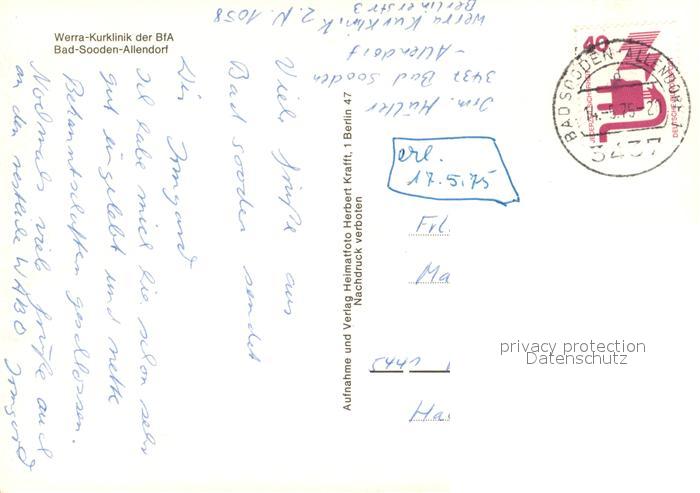 Werra-Kurklinik der BfA
Bad-Sooden-Allendorf
Viele Grüße aus
Bad Sooden sendet
Dir Irmgard
Ich habe mich hie schon sehr
gut eingelebt und nette
Bekanntschaften geschlossen.
Nochmals viele Grüße auch
an den restliche WABO Irmgard
Aufnahme und Verlag Heimatfoto Herbert Krafft, 1 Berlin 47
Nachdruck verboten
Irm. Müller
3437 Bad Sooden
- Allendorf
Werra Kurklinik
Berlinerstr 3
Z. N. 1058
40
BAD SOODEN-ALLENDORF
14.-5.75-21
3437
erl.
17.5.75
Frl.
Ma
5441
Ha
privacy protection
Datenschutz